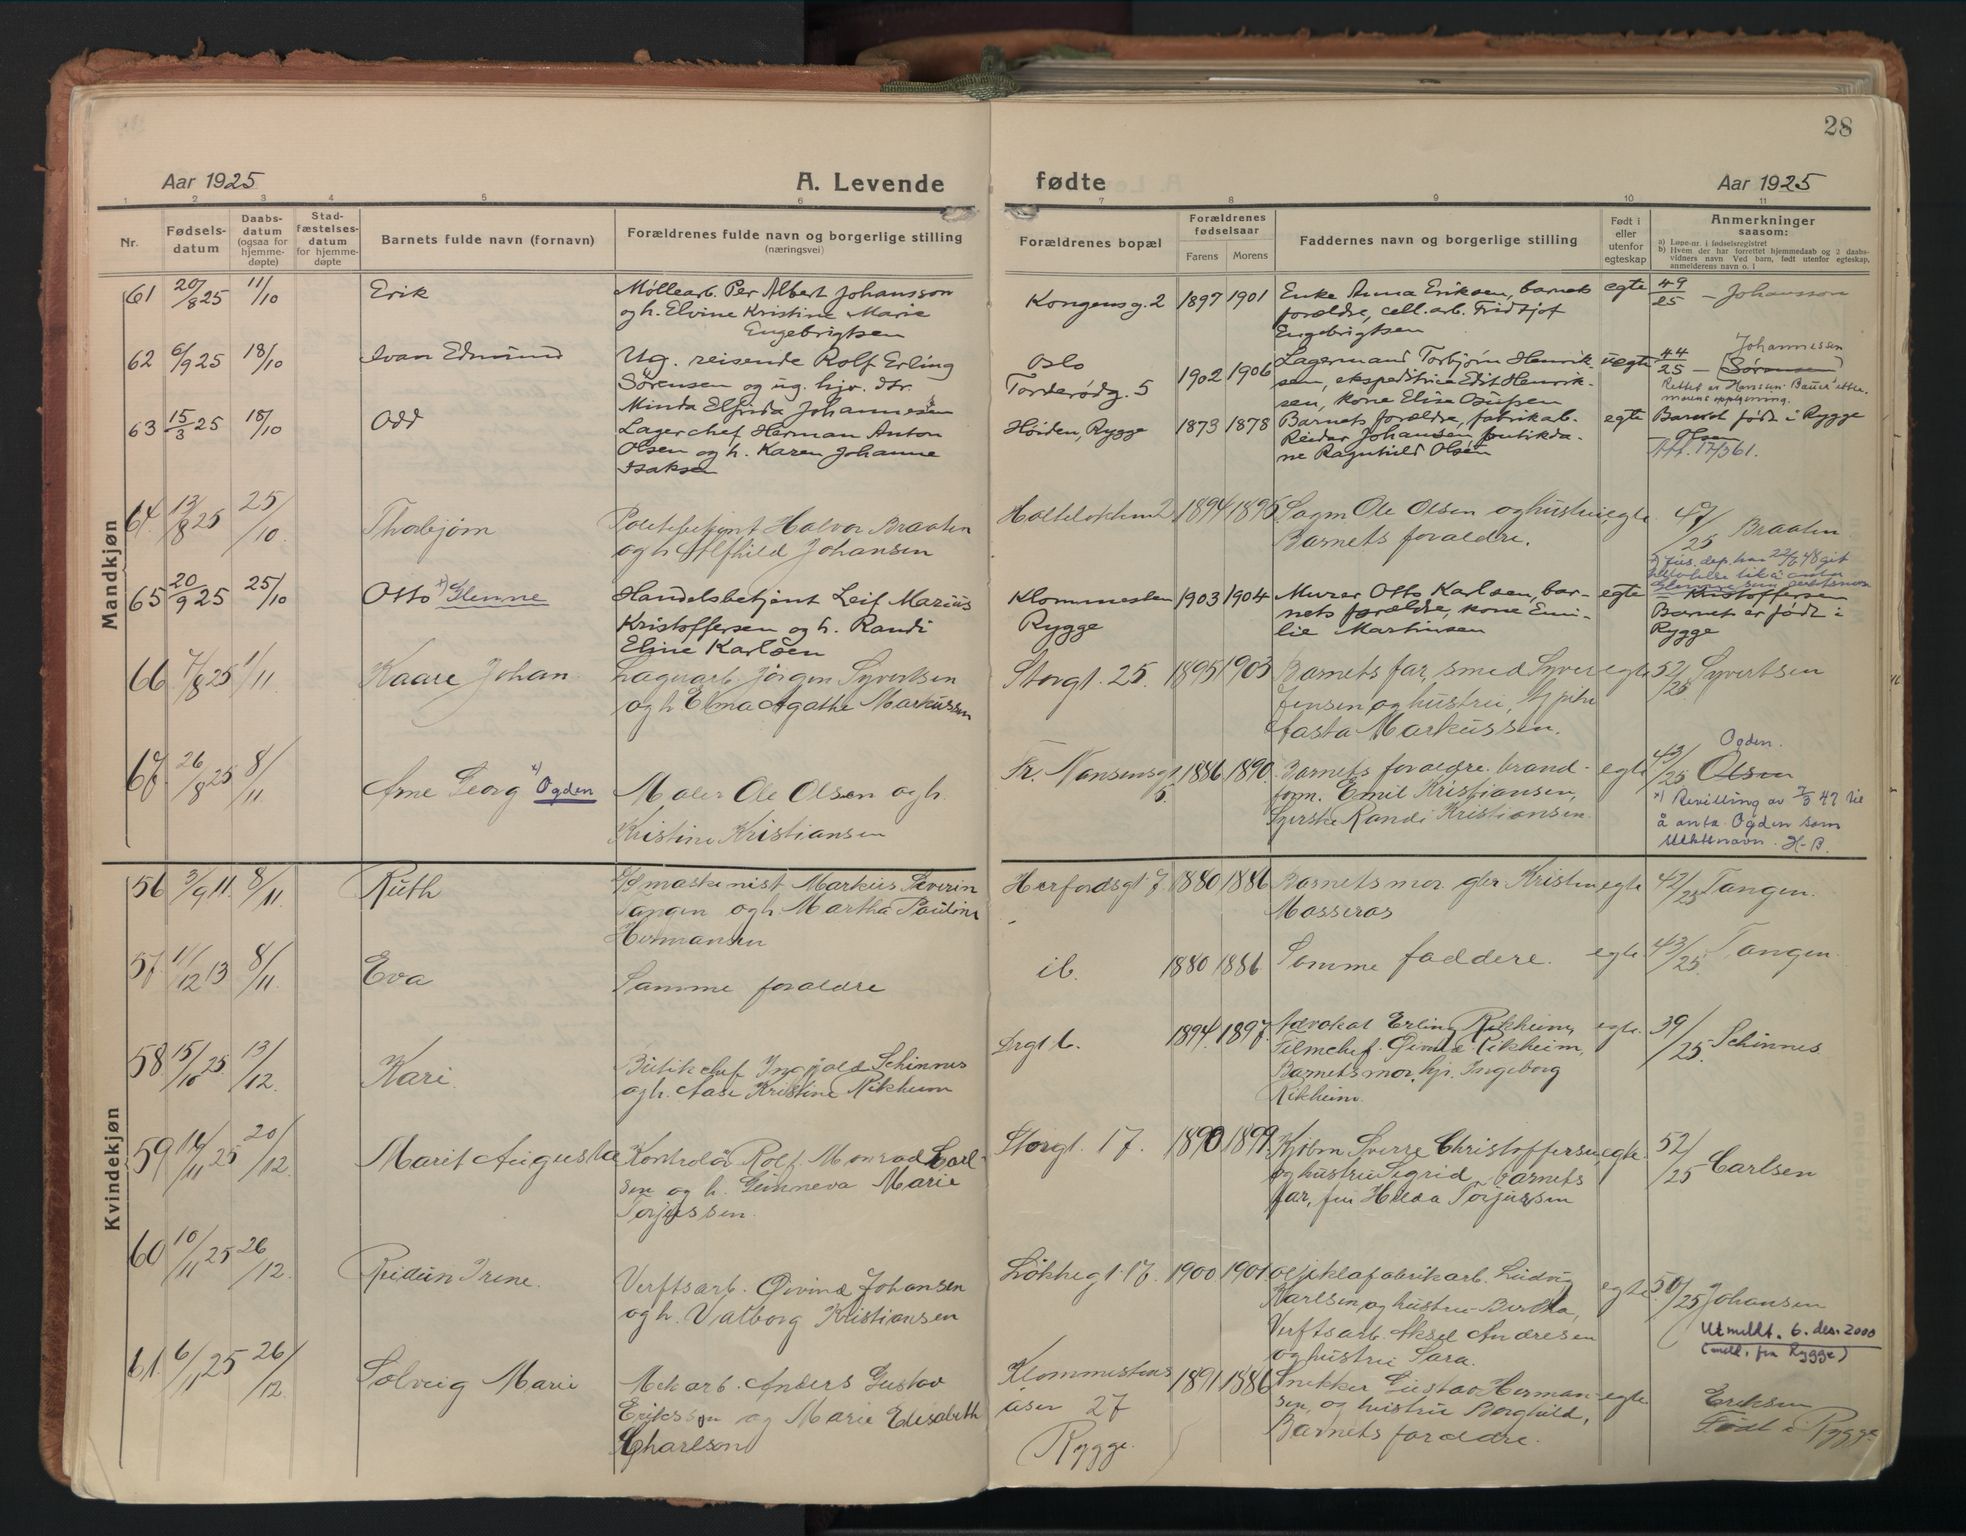 28
Aar 1925
A. Levende
fødte
Aar 1925
1 2 3 4 5 6 7 8 9 10 11
Nr.
Fødsels-
datum
Daabs-
datum
(ogsaa for
hjemme-
døpte)
Stad-
fæstelses-
datum
for hjemme-
døpte
Barnets fulde navn (fornavn)
Forældrenes fulde navn og borgerlige stilling
(næringsvei)
Forældrenes bopæl
Forældrenes
fødselsaar
Farens Morens
Faddernes navn og borgerlige stilling
Født i
eller
utenfor
egteskap
Anmerkninger
saasom:
a) Løpe-nr. i fødselsregistret
b) Hvem der har forrettet hjemmedaab og 2 daabs-
vidners navn Ved barn, født utenfor egteskap,
anmelderens navn o. l
Mandkjøn
61 20/8 25 11/10 Erik
Møllearb. Per Albert Johansson
og h. Elvine Kristine Marie
Engebrigtsen
Kongensg. 2 1897 1901
Enke Anna Eriksen, barnets
forældre, cell. arb. Fridtjof
Engebrigtsen
egte 49/25 - Johansson
62 6/9 25 18/10 Ivan Edmund
Ug. reisende Rolf Erling
Sørensen og ug. hjv. dtr.
Minda Elfrida Johannesen
Oslo
Torderødg. 5 1902 1906
Lagermand Torbjørn Henrik-
sen, ekspeditrice Edit Henrik-
sen, kone Elise
uegte 44/25 - Johannessen
(Sørensen)
63 15/3 25 18/10 Odd
Lagerchef Herman Anton
Olsen og h. Karen Johanne
Isaksen
Høiden, Rygge 1873 1878
Barnets forældre, fabrikab.
Reidar Johansen, butikda-
me Ragnhild Olsen
egte Barnet født i Rygge
Olsen
Att. 17/3 61.
64. 13/8 25 25/10 Thorbjørn
Politibetjent Halvor Braaten
og h Alfhild Johansen
Holteløkken 2 1894 1895
Sagm Ole Olsen og hustru,
Barnets foraldre.
egte 47/25 Braaten
65 20/9 25 25/10 Otto x) Glenne
Handelsbetjent Leif Marius
Kristoffersen og h. Randi
Eline Karlsen
Klommesten
Rygge 1903 1904
Murer Otto Karlsen, bar-
nets forældre, kone Emi-
lie Martinsen
egte
x) Jus. dep. har 22/6 48 git
Kristoffersen
Barnet er født i
Rygge
66 7/8 25 1/11 Kaare Johan
Lagerarb. Jörgen Syvertsen
og h Elma Agathe Markussen
Storgt. 25. 1895 1903
Barnets far, smed Syver
Jensen og hustru,
Aasta Markussen.
egte 52/25 Syvertsen
67. 26/8 25 8/11 Arne Georg x) Ogden
Maler Ole Olsen og h.
Kristine Kristiansen
Fr. Nansensgt
5. 1886 1890.
Barnets foraldre. brand-
form. Emil Kristiansen,
Syerske Randi Kristiansen.
egte 43/25 Ogden.
Olsen
x) Bevilling av 7/3 47 til
å anta Ogden som
slektsnavn. H-B.
Kvindekjøn
56 3/9 11. 8/11. Ruth
maskinist Markus Severin
Tangen og h. Martha Pauline
Hermansen
Herfordsgt 7 1880 1886
Barnets mor.
Mosseros
egte 42/25 Tangen.
57. 1/12 13 8/11 Eva
Samme foraldre
ib. 1880 1886
Samme faddere.
egte 43/25. Tangen.
58. 15/10 25. 13/12 Kari.
Butikchef Ingvald Schinnes
og h. Aase Kristine Rikheim
1894. 1897.
Advokat Erling Rikheim,
Filmchef. Øivind Rikheim,
Barnets mor, hjv. Ingeborg
Rikheim.
egte. 39/25. Schinnes
59 14/11 25 20/12. Marit Augusta
Kontrolør Rolf Monrad Carl-
sen og h. Gunneva Marie
Torjussen.
Storgt. 17. 1890 1899.
Kjøbm Sverre Christoffersen,
og hustru Sigrid, barnets
far, fru Hilda Torjussen
egte. 52/25 Carlsen
60 10/11 25 26/12. Reidun Irene.
Verftsarb. Øivind Johansen
og h. Valborg Kristiansen
Løkkegt. 17. 1900 1901
oljeklæfabrikarb. Ludvig
Karlsen, og hustru Bertha,
Verftsarb. Aksel Andresen
og hustru Sara.
egte 50/25 Johansen
Utmeldt. 6. des. 2000
(meld. fra Rygge)
61. 6/11 25 26/12. Solveig Marie
Mek arb. Anders Gustav
Eriksson og Marie Elisabeth
Charlson
Klommestens
åsen 27
Rygge. 1891 1886
Snekker Gustav Herman-
sen, og hustru Borghild,
Barnets foraldre.
egte Eriksen
Født i Rygge